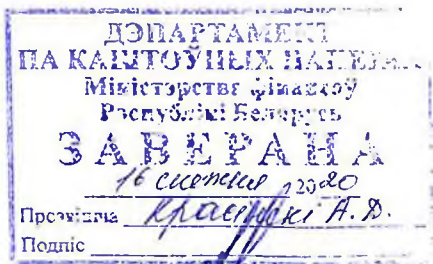 ДЭПАРТАМЕНТ
ПА КАШТОЎНЫХ ПАПЕРАХ
Міністэрства фінансаў
Рэспублікі Беларусь
ЗАВЕРАНА
16 снежня 2020
Прозвішча А. В.
Подпіс